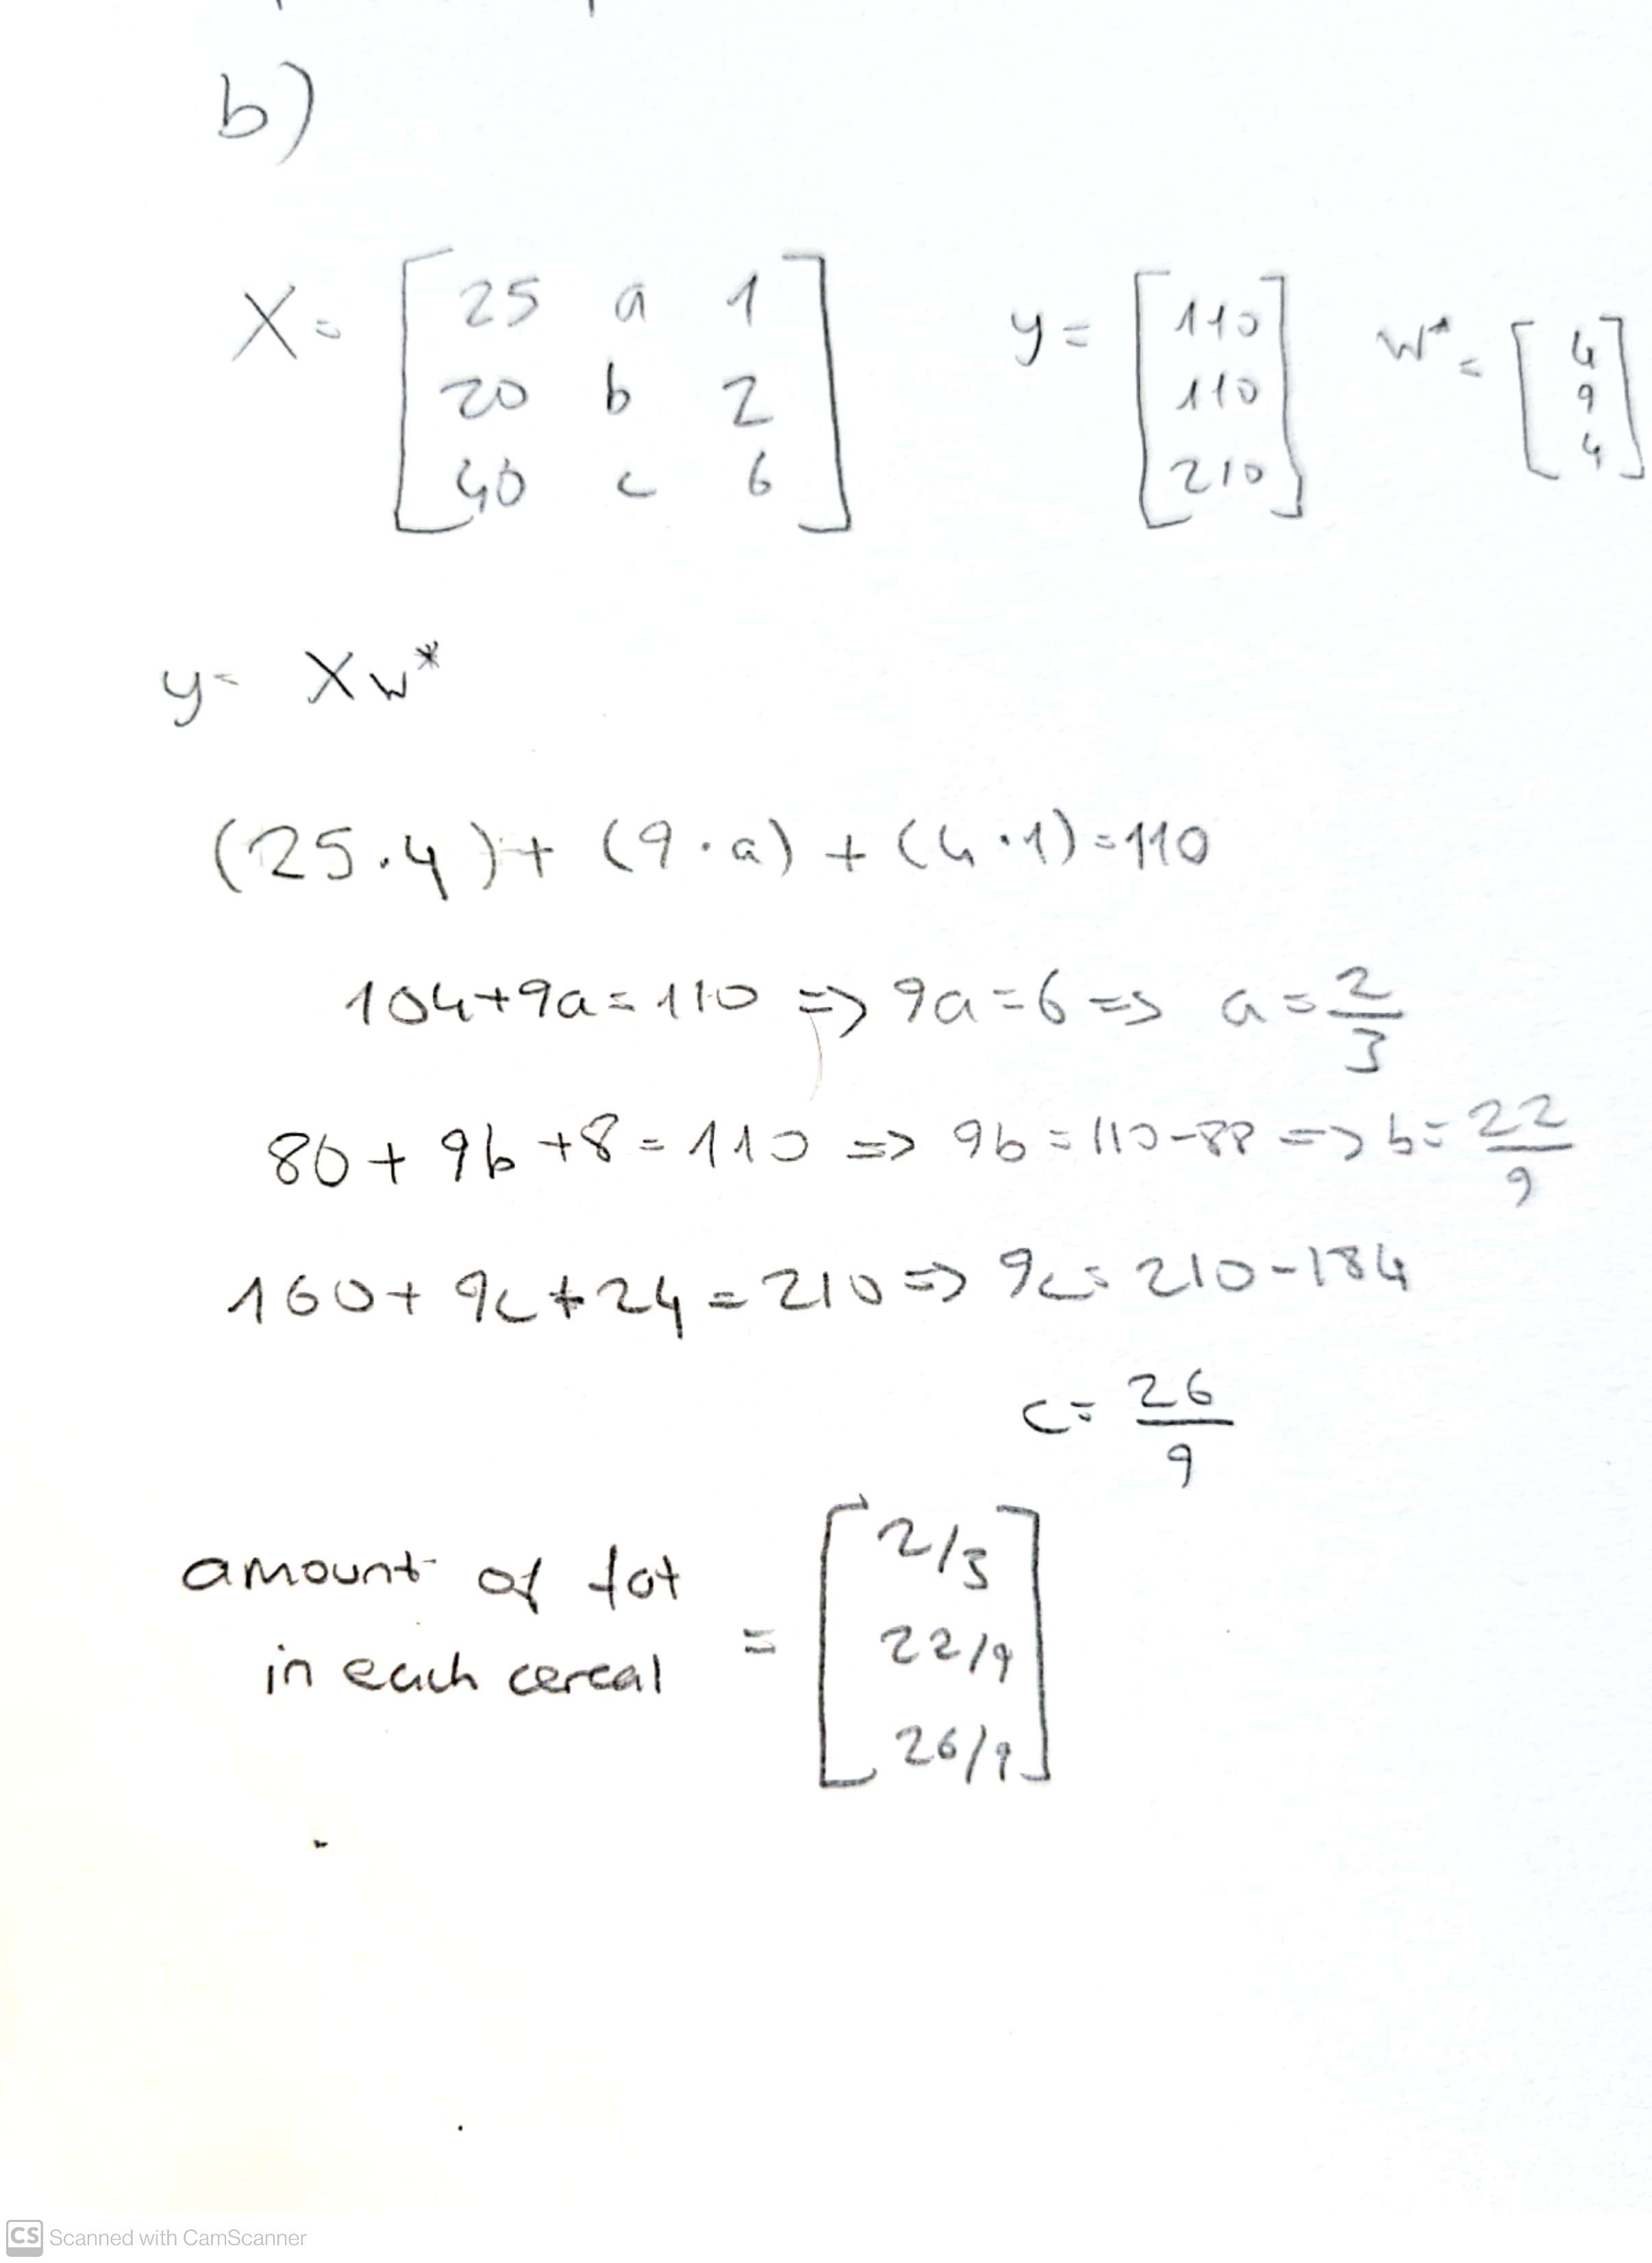 b)
X = [ 25 a 1 ] y = [ 110 ] w* = [ 4 ]
[ 20 b 2 ] [ 110 ] [ 9 ]
[ 40 c 6 ] [ 210 ] [ 4 ]
y = Xw*
(25.4) + (9.a) + (4.1) = 110
104+9a = 110 => 9a = 6 => a = 2/3
80 + 9b + 8 = 110 => 9b = 110-88 => b = 22/9
160 + 9c + 24 = 210 => 9c = 210-184
c = 26/9
amount of fat in each cereal = [ 2/3 ]
[ 22/9 ]
[ 26/9 ]
CS Scanned with CamScanner